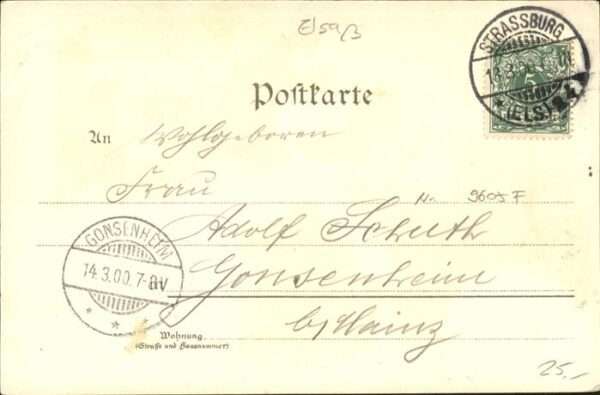 E/59/3
STRASSBURG
13.3.00
5
(ELS)
Postkarte
An Wohlgeboren
Frau
No. 9605 F
Adolf Schuth
Gonsenheim
b/Mainz
GONSENHEIM
14.3.00.7-8V
* *
Wohnung
(Straße und Hausnummer)
25.-